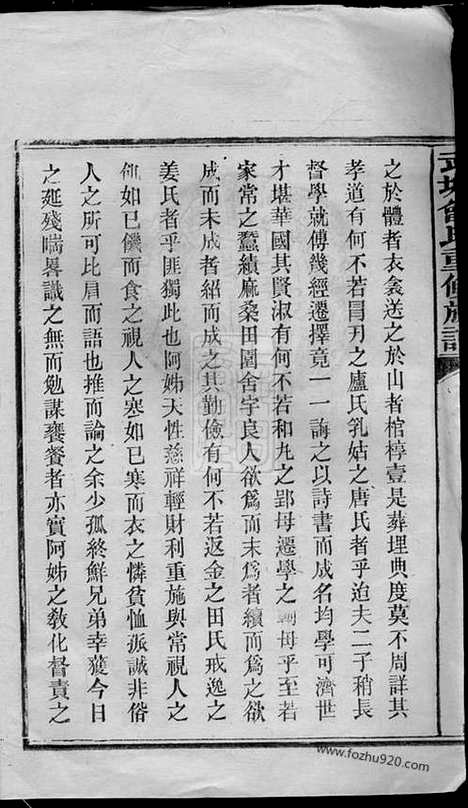 武城曾氏重修族譜
之於體者衣衾送之於山者棺槨壹是葬埋典度莫不周詳其
孝道有何不若冒刃之盧氏乳姑之唐氏者乎迨夫二子稍長
督學就傅幾經遷擇竟一一誨之以詩書而成名均學可濟世
才堪華國其賢淑有何不若和丸之郢母遷學之鄒母乎至若
家常之蠶績麻桑田園舍宇良人欲爲而未爲者續而爲之欲
成而未成者紹而成之其勤儉有何不若返金之田氏戒逸之
姜氏者乎匪獨此也阿姊天性慈祥輕財利重施與常視人之
飢如已饑而食之視人之寒如已寒而衣之憐貧恤孤誠非俗
人之所可比肩而語也推而論之余少孤終鮮兄弟幸獲今日
之延殘喘畧識之無而勉謀饔餐者亦實阿姊之敎化督責之
www.fozhu920.com